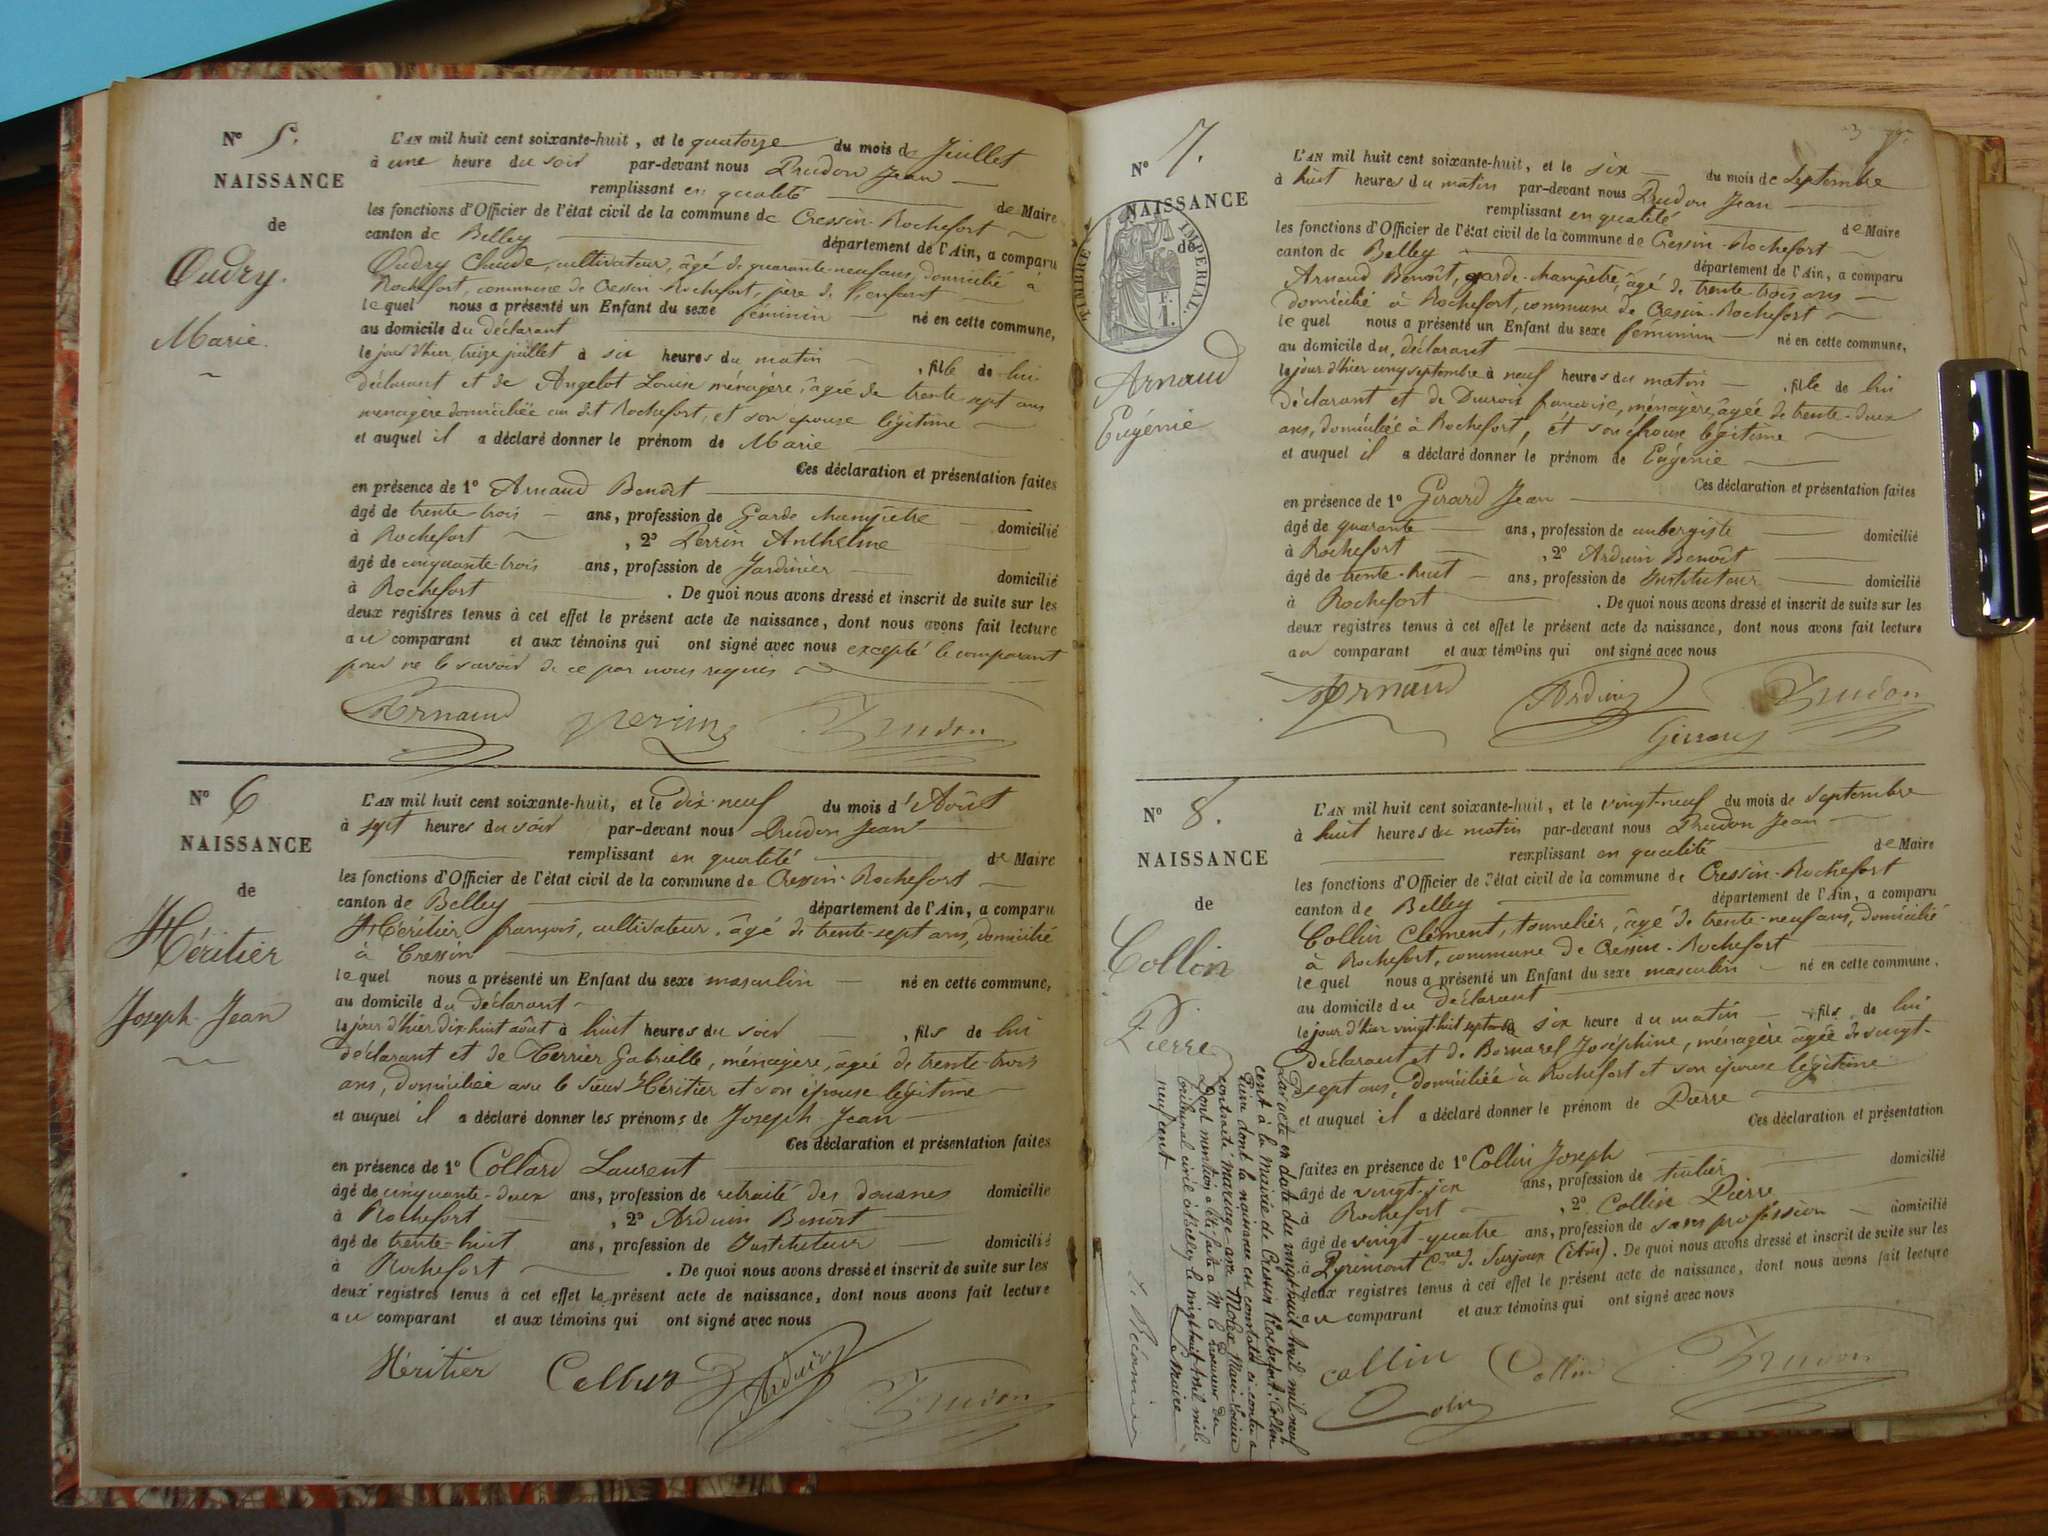 N° 5.
NAISSANCE
de
Oudry
Marie.
L'AN mil huit cent soixante-huit, et le quatorze du mois de Juillet
à une heure du soir par-devant nous Prudon Jean
remplissant en qualité de Maire
les fonctions d'Officier de l'état civil de la commune de Cressin-Rochefort
canton de Belley département de l'Ain, a comparu
Oudry Claude, cultivateur, âgé de quarante-neuf ans, domicilié à
Rochefort, commune de Cressin-Rochefort, père de l'enfant
lequel nous a présenté un Enfant du sexe féminin né en cette commune,
au domicile du déclarant
le jour d'hier treize juillet à six heures du matin , fille de lui
déclarant et de Angelot Louise ménagère, âgée de trente-sept ans
ménagère domiciliée au dit Rochefort, et son épouse légitime
et auquel il a déclaré donner le prénom de Marie
Ces déclaration et présentation faites
en présence de 1° Arnaud Benoît
âgé de trente-trois ans, profession de Garde champêtre domicilié
à Rochefort , 2° Perrin Anthelme
âgé de cinquante-trois ans, profession de Jardinier domicilié
à Rochefort . De quoi nous avons dressé et inscrit de suite sur les
deux registres tenus à cet effet le présent acte de naissance, dont nous avons fait lecture
au comparant et aux témoins qui ont signé avec nous excepté le comparant
pour ne le savoir de ce par nous requis
Arnaud Perrin Prudon
N° 6
NAISSANCE
de
Héritier
Joseph-Jean
L'AN mil huit cent soixante-huit, et le Dix-neuf du mois d'Août
à sept heures du soir par-devant nous Prudon Jean
remplissant en qualité de Maire
les fonctions d'Officier de l'état civil de la commune de Cressin-Rochefort
canton de Belley département de l'Ain, a comparu
Héritier françois, cultivateur, âgé de trente-sept ans, domicilié
à Cressin
lequel nous a présenté un Enfant du sexe masculin né en cette commune,
au domicile du Déclarant
le jour d'hier dix-huit août à huit heures du soir , fils de lui
déclarant et de Terrier Gabrielle, ménagère, âgée de trente-trois
ans, domiciliée avec le sieur Héritier et son épouse légitime
et auquel il a déclaré donner les prénoms de Joseph-Jean
Ces déclaration et présentation faites
en présence de 1° Collard Laurent
âgé de cinquante-deux ans, profession de retraité des douanes domicilié
à Rochefort , 2° Arduin Benoît
âgé de trente-huit ans, profession de Instituteur domicilié
à Rochefort . De quoi nous avons dressé et inscrit de suite sur les
deux registres tenus à cet effet le présent acte de naissance, dont nous avons fait lecture
au comparant et aux témoins qui ont signé avec nous
Héritier Arduin Prudon
N° 7.
NAISSANCE
de
TIMBRE IMPÉRIAL
1 F.
Arnaud
Eugénie
L'AN mil huit cent soixante-huit, et le six du mois de Septembre
à huit heures du matin par-devant nous Prudon Jean
remplissant en qualité de Maire
les fonctions d'Officier de l'état civil de la commune de Cressin-Rochefort
canton de Belley département de l'Ain, a comparu
Arnaud Benoît, garde-champêtre, âgé de trente trois ans
domicilié à Rochefort, commune de Cressin-Rochefort
lequel nous a présenté un Enfant du sexe féminin né en cette commune,
au domicile du déclarant
le jour d'hier cinq septembre à neuf heures du matin , fille de lui
déclarant et de françoise, ménagère, âgée de trente-deux
ans, domiciliée à Rochefort, et son épouse légitime
et auquel il a déclaré donner le prénom de Eugénie
Ces déclaration et présentation faites
en présence de 1° Girard Jean
âgé de quarante ans, profession de aubergiste domicilié
à Rochefort , 2° Arduin Benoît
âgé de trente-huit ans, profession de Instituteur domicilié
à Rochefort . De quoi nous avons dressé et inscrit de suite sur les
deux registres tenus à cet effet le présent acte de naissance, dont nous avons fait lecture
au comparant et aux témoins qui ont signé avec nous
Arnaud Arduin Prudon
N° 8.
NAISSANCE
de
Collin
Pierre
L'AN mil huit cent soixante-huit, et le vingt-neuf du mois de septembre
à huit heures du matin par-devant nous Prudon Jean
remplissant en qualité de Maire
les fonctions d'Officier de l'état civil de la commune de Cressin-Rochefort
canton de Belley département de l'Ain, a comparu
Collin Clément, tonnelier, âgé de trente-neuf ans, domicilié
à Rochefort, commune de Cressin-Rochefort
lequel nous a présenté un Enfant du sexe masculin né en cette commune,
au domicile du déclarant
le jour d'hier vingt-huit septembre six heure du matin , fils de lui
déclarant et de Bornarel Joséphine, ménagère âgée de vingt-
sept ans, domiciliée à Rochefort et son épouse légitime
et auquel il a déclaré donner le prénom de Pierre
Ces déclaration et présentation
faites en présence de 1° Collin Joseph
âgé de vingt-six ans, profession de domicilié
à Rochefort , 2° Collin Pierre
âgé de vingt-quatre ans, profession de sans profession domicilié
à Pyrimont Cne de Surjoux (Ain). De quoi nous avons dressé et inscrit de suite sur les
deux registres tenus à cet effet le présent acte de naissance, dont nous avons fait lecture
au comparant et aux témoins qui ont signé avec nous
collin Collin Prudon
Collin
Par acte en date du vingt-huit Avril mil neuf
cent à la Mairie de Cressin Rochefort, Collin
Pierre dont la naissance est constatée ci-contre a
contracté mariage avec Marie Louise
Dont mention a été faite à M. le Procureur du
tribunal civil à Belley le vingt-huit Avril mil
neuf cent Le Maire